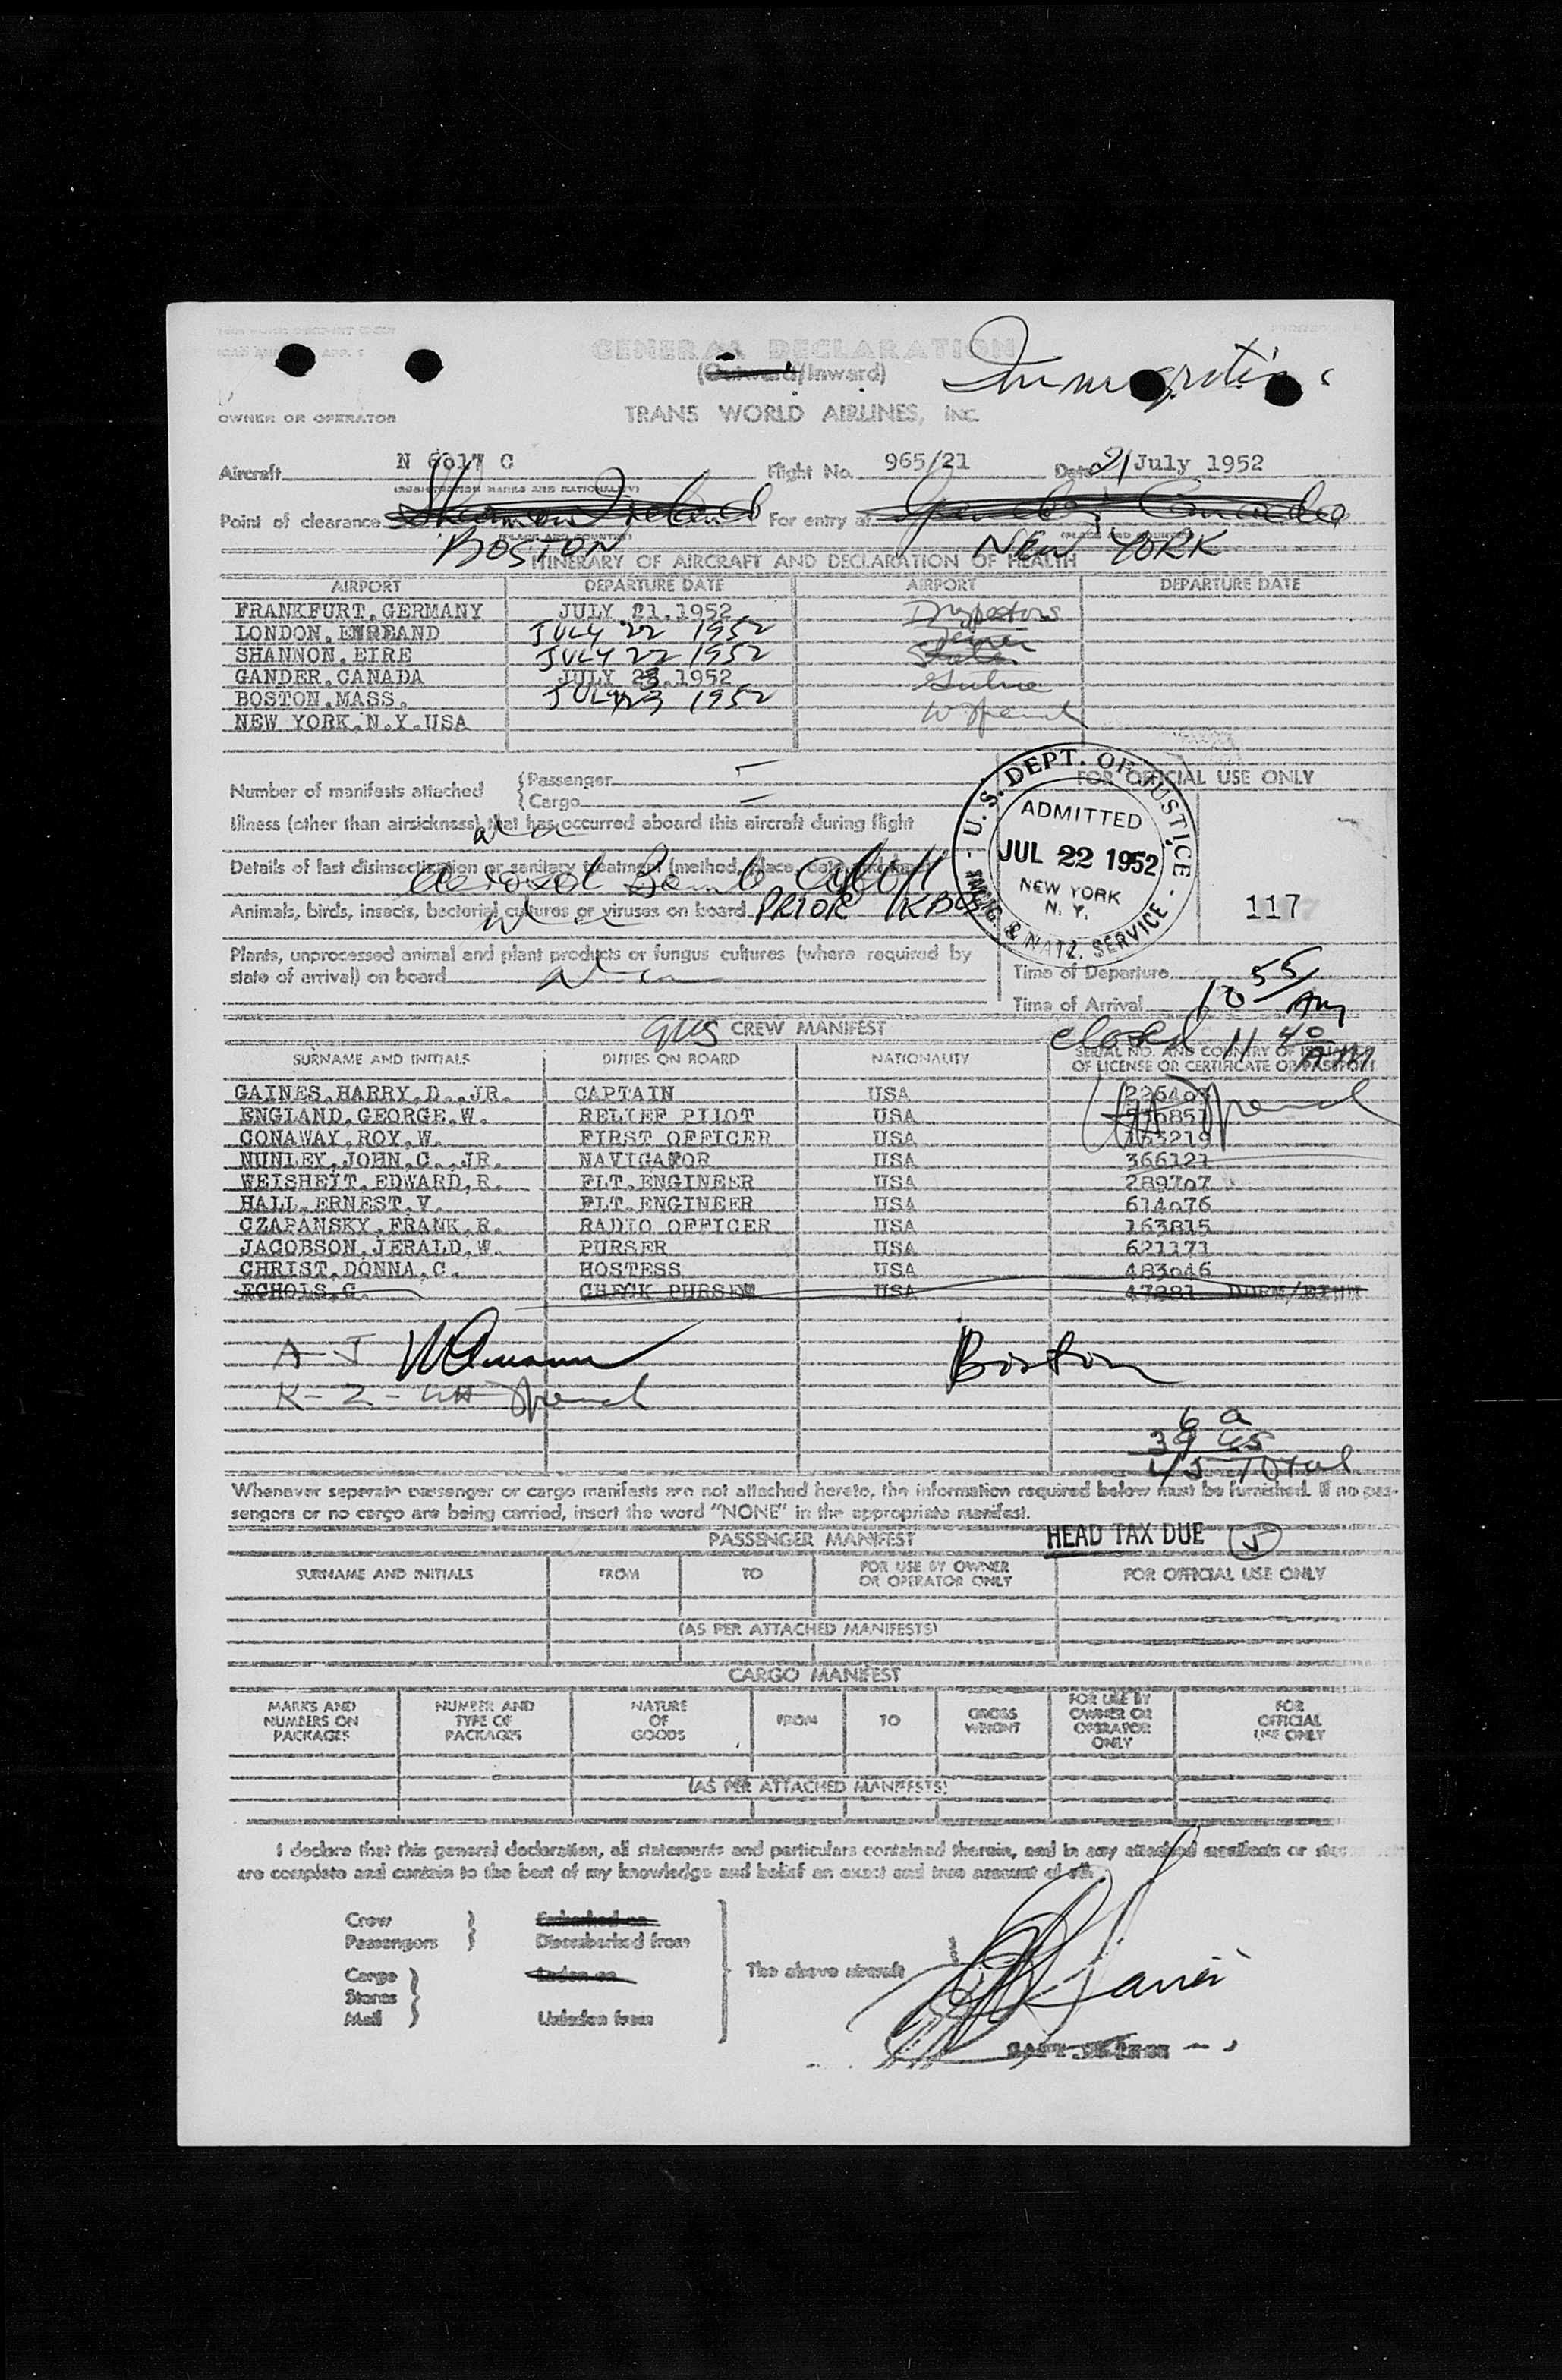 GENERAL DECLARATION
(Outward/Inward)
Immigration
OWNER OR OPERATOR TRANS WORLD AIRLINES, INC.
Aircraft N 6017 C Flight No. 965/21 Date 21 July 1952
(REGISTRATION MARKS AND NATIONALITY)
Point of clearance Shannon Ireland For entry at Gander Canada
(PLACE AND COUNTRY) (PLACE AND COUNTRY)
BOSTON NEW YORK
ITINERARY OF AIRCRAFT AND DECLARATION OF HEALTH
AIRPORT DEPARTURE DATE AIRPORT DEPARTURE DATE
FRANKFURT, GERMANY JULY 21, 1952 Inspectors
LONDON, JULY 22 1952
SHANNON, EIRE JULY 22 1952
GANDER, CANADA JULY 23, 1952
BOSTON, MASS. JULY 23 1952
NEW YORK, N.Y. USA
Number of manifests attached { Passenger —
{ Cargo —
FOR OFFICIAL USE ONLY
Illness (other than airsickness) that has occurred aboard this aircraft during flight
Details of last disinsectization or sanitary treatment (method, place, date,
aerosol Bomb aloft
Animals, birds, insects, bacterial cultures or viruses on board PRIOR
U.S. DEPT. OF JUSTICE
ADMITTED
JUL 22 1952
NEW YORK
N. Y.
IMMIG. & NATZ. SERVICE
117
Plants, unprocessed animal and plant products or fungus cultures (where required by
state of arrival) on board
Time of Departure
Time of Arrival 10 55 AM
closed 11 40 AM
CREW MANIFEST
SURNAME AND INITIALS DUTIES ON BOARD NATIONALITY SERIAL NO. AND COUNTRY OF ISSUE
OF LICENSE OR CERTIFICATE OR PASSPORT
GAINES, HARRY, D., JR. CAPTAIN USA
ENGLAND, GEORGE, W. RELIEF PILOT USA
CONAWAY, ROY, W. FIRST OFFICER USA
NUNLEY, JOHN, C., JR. NAVIGATOR USA 366121
WEISHEIT, EDWARD, R. FLT. ENGINEER USA 289707
HALL, ERNEST, V. FLT. ENGINEER USA 614076
CZAPANSKY, FRANK, R. RADIO OFFICER USA 163815
JACOBSON, JERALD, W. PURSER USA 621171
CHRIST, DONNA, C. HOSTESS USA 483046
ECHOLS, G. CHECK PURSER USA 47281
A - J Boston
K - Z -
6 a
39 us
45 Total
Whenever seperate passenger or cargo manifests are not attached hereto, the information required below must be furnished. If no pas-
sengers or no cargo are being carried, insert the word "NONE" in the appropriate manifest.
PASSENGER MANIFEST HEAD TAX DUE 5
SURNAME AND INITIALS FROM TO FOR USE BY OWNER
OR OPERATOR ONLY FOR OFFICIAL USE ONLY
(AS PER ATTACHED MANIFESTS)
CARGO MANIFEST
MARKS AND
NUMBERS ON
PACKAGES
NUMBER AND
TYPE OF
PACKAGES
NATURE
OF
GOODS
FROM
TO
GROSS
WEIGHT
FOR USE BY
OWNER OR
OPERATOR
ONLY
FOR
OFFICIAL
USE ONLY
(AS PER ATTACHED MANIFESTS)
I declare that this general declaration, all statements and particulars contained therein, and in any attached manifests or
are complete and contain to the best of my knowledge and belief an exact and true account of all
Crew Embarked on
Passengers Disembarked from
Cargo Laden on The above aircraft
Stores
Mail Unladen from